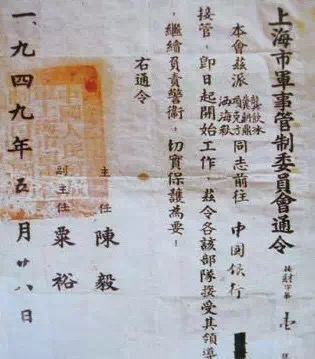 上海市軍事管制委員會通令
接財字第壹
本會茲派
龔飲冰
冀朝鼎
項克方
同志前往中國銀行
接管，即日起開始工作，茲令各該部隊接受其領導
繼續負責警衛，切實保護為要！
右通令
主任 陳毅
副主任 粟裕
一、九四九年五月廿八日